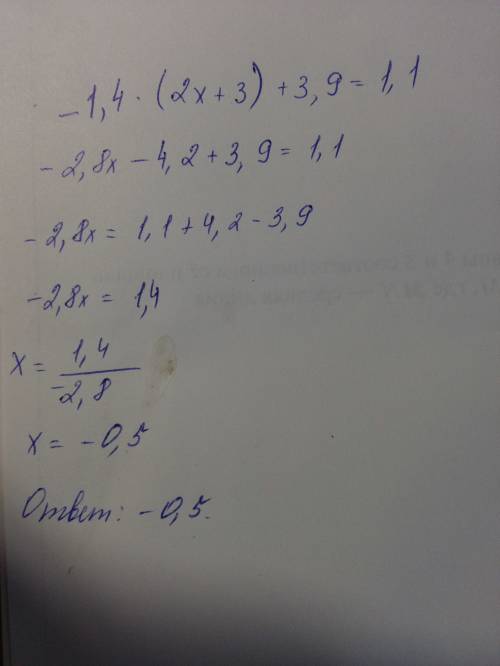 -1,4 · (2x+3) +3,9 = 1,1
-2,8x - 4,2 + 3,9 = 1,1
-2,8x = 1,1 + 4,2 - 3,9
-2,8x = 1,4
x = 1,4 / -2,8
x = -0,5
Ответ: -0,5.